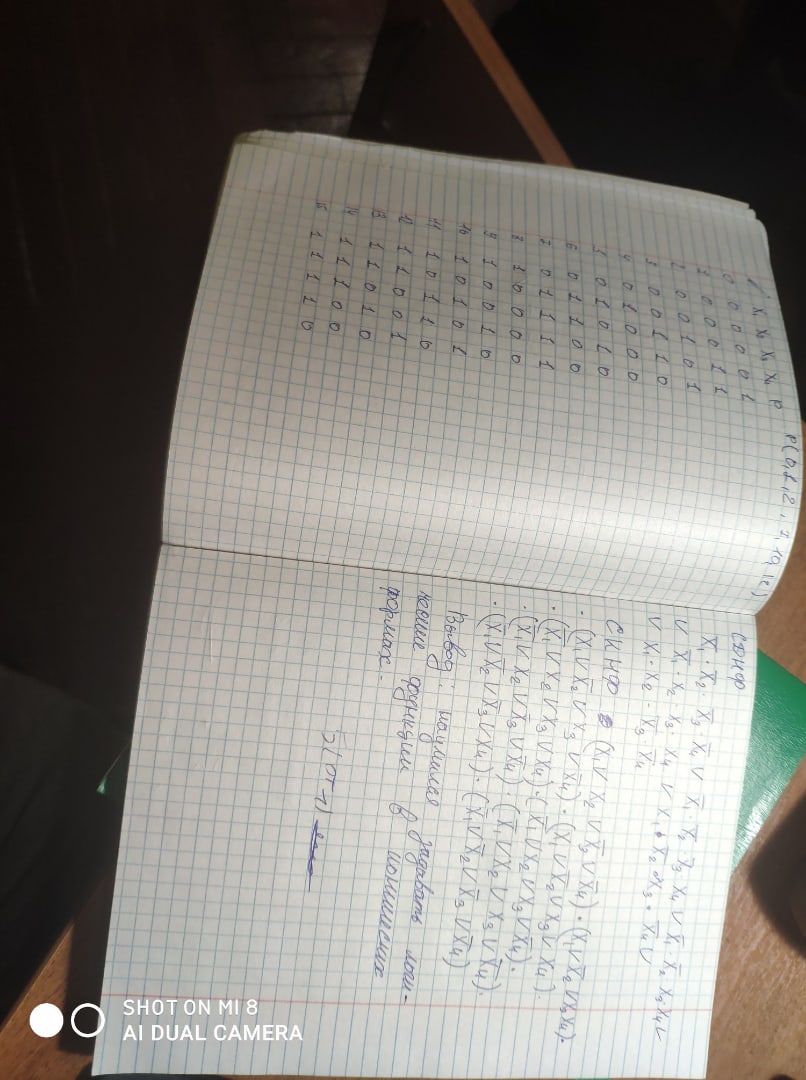 i x₁ x₂ x₃ x₄ P P(0,1,2,7,10,12)
0 0 0 0 0 1
1 0 0 0 1 1
2 0 0 1 0 1
3 0 0 1 1 0
4 0 1 0 0 0
5 0 1 0 1 0
6 0 1 1 0 0
7 0 1 1 1 1
8 1 0 0 0 0
9 1 0 0 1 0
10 1 0 1 0 1
11 1 0 1 1 0
12 1 1 0 0 1
13 1 1 0 1 0
14 1 1 1 0 0
15 1 1 1 1 0
СДНФ
x̄₁ · x̄₂ · x̄₃ · x̄₄ ∨ x̄₁ · x̄₂ · x̄₃ · x₄ ∨ x̄₁ · x̄₂ · x₃ · x̄₄ ∨
∨ x̄₁ · x₂ · x₃ · x₄ ∨ x₁ · x̄₂ · x₃ · x̄₄ ∨
∨ x₁ · x₂ · x̄₃ · x̄₄
СКНФ (x₁ ∨ x₂ ∨ x̄₃ ∨ x̄₄) · (x₁ ∨ x̄₂ ∨ x₃ ∨ x₄) ·
· (x₁ ∨ x̄₂ ∨ x₃ ∨ x̄₄) · (x₁ ∨ x̄₂ ∨ x̄₃ ∨ x₄) ·
· (x̄₁ ∨ x₂ ∨ x₃ ∨ x₄) · (x̄₁ ∨ x₂ ∨ x₃ ∨ x̄₄) ·
· (x̄₁ ∨ x₂ ∨ x̄₃ ∨ x̄₄) · (x̄₁ ∨ x̄₂ ∨ x₃ ∨ x̄₄) ·
· (x̄₁ ∨ x̄₂ ∨ x̄₃ ∨ x₄) · (x̄₁ ∨ x̄₂ ∨ x̄₃ ∨ x̄₄)
Вывод: научились задавать логи-
ческие функции в
формах.
SHOT ON MI 8
AI DUAL CAMERA